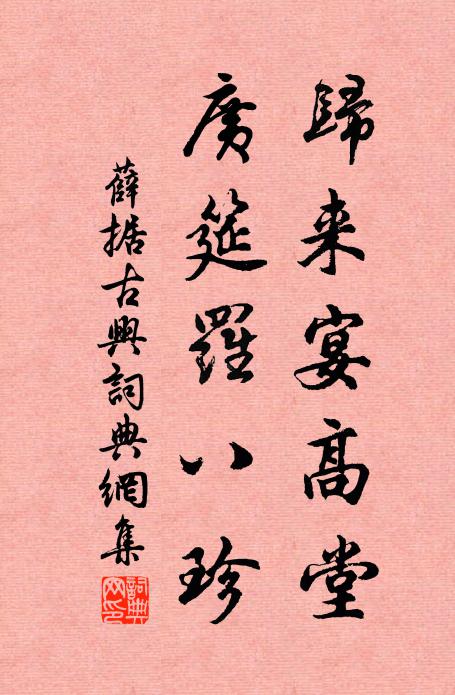 歸来宴高堂
廣筵羅八珍
薛据古興詞典網集
詞典網印